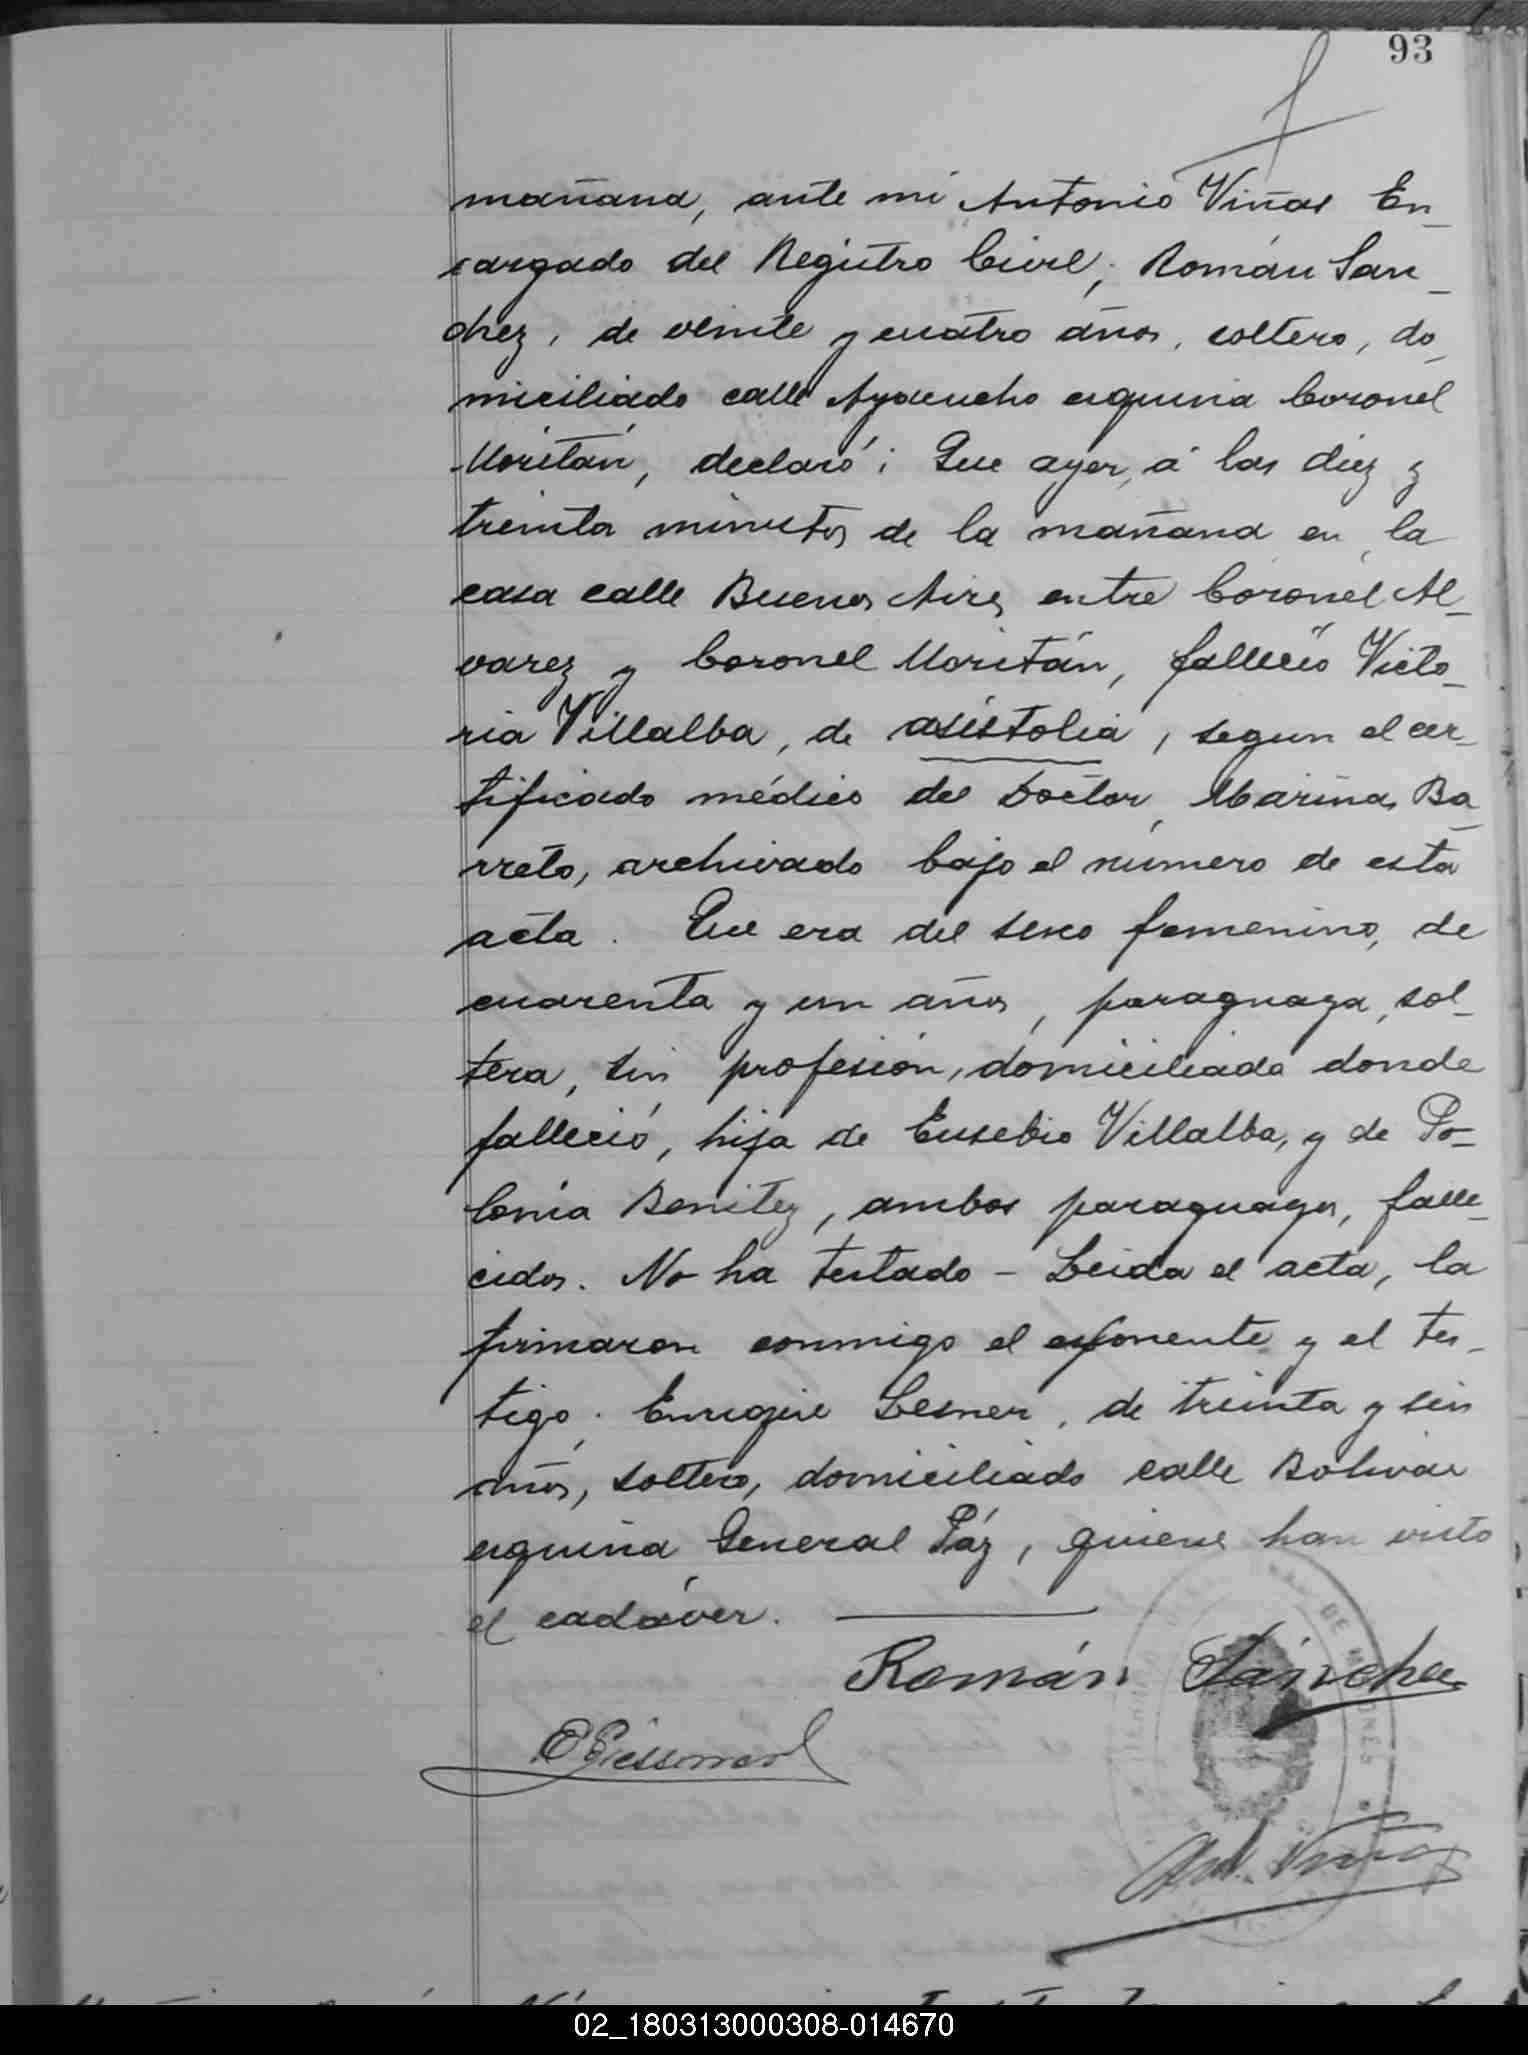 93
mañana, ante mí Antonio Viñas En_
cargado del Registro Civil; Román San_
chez, de veinte y cuatro años, soltero, do_
miciliado calle Ayacucho esquina Coronel
Moritán, declaró; Que ayer, á las diez y
treinta minutos de la mañana en la
casa calle Buenos Aires entre Coronel Al_
varez y Coronel Moritán, falleció Victo_
ria Villalba, de asistolia, segun el cer_
tificado médico del Doctor Marino Ba_
rreto, archivado bajo el número de esta
acta. Que era del sexo femenino, de
cuarenta y un años, paraguaya, sol_
tera, sin profesión, domiciliada donde
falleció, hija de Eusebio Villalba, y de Po_
lonia Benitez, ambos paraguayos, falle_
cidos. No ha testado - Leida el acta, la
firmaron conmigo el exponente y el tes_
tigo. Enrique de treinta y seis
años, soltero, domiciliado calle Bolivar
esquina General Páz, quienes han visto
el cadáver.
Román Sánchez
DE MISIONES
Ant. Viñas
02_180313000308-014670